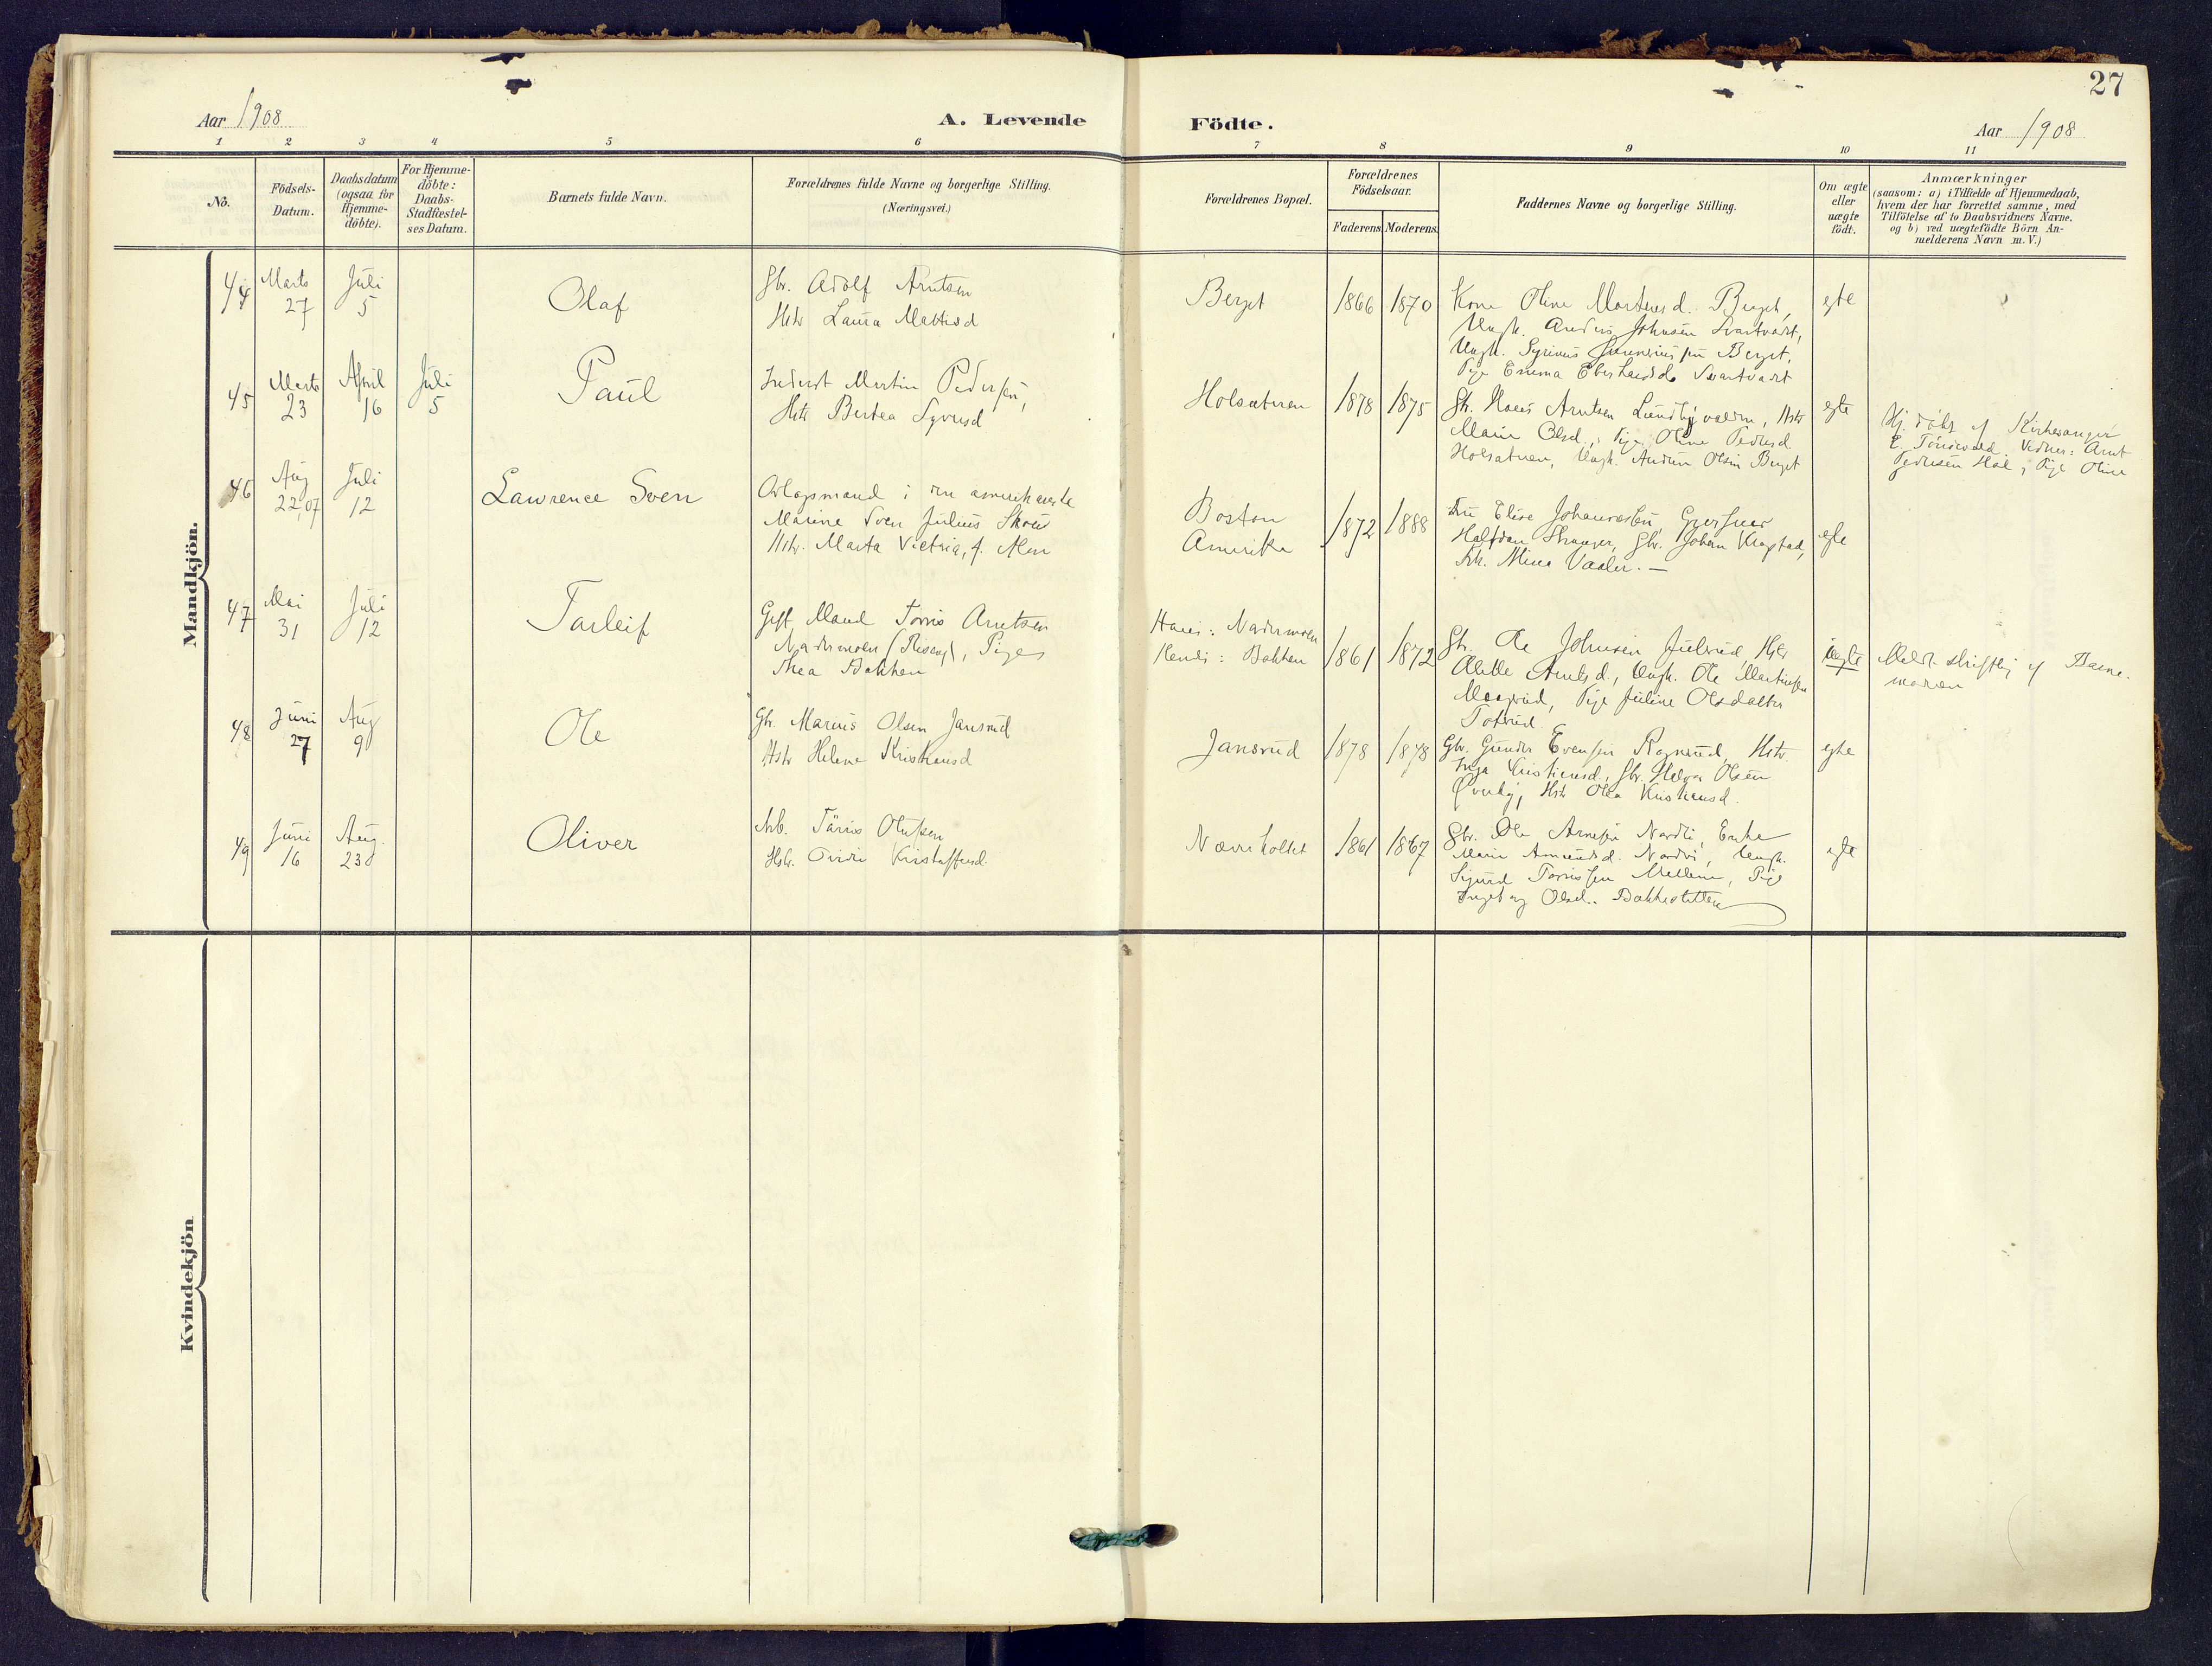 27
Aar 1908
A. Levende
Födte.
Aar 1908
1 2 3 4 5 6 7 8 9 10 11
No.
Födsels-
Datum.
Daabsdatum
(ogsaa for
Hjemme-
döbte).
For Hjemme-
döbte:
Daabs-
Stadfæstel-
ses Datum.
Barnets fulde Navn.
Forældrenes fulde Navne og borgerlige Stilling.
(Næringsvei.)
Forældrenes Bopæl.
Forældrenes
Födselsaar.
Faderens. Moderens.
Faddernes Navne og borgerlige Stilling.
Om ægte
eller
uægte
födt.
Anmærkninger
(saasom: a) i Tilfælde af Hjemmedaab,
hvem der har forrettet samme, med
Tilföielse af to Daabsvidners Navne.
og b) ved uægtefödte Börn An-
melderens Navn m. V.)
Mandkjön.
44
Marts
27
Juli
5
Olaf
Gbr. Adolf Arntsen
Hstr Laura Mattisd
Berget
1866
1870
Kone Oline Martinsd. Berget,
Ungk. Anders Johnsen Svartvadet,
Ungk. Syrinus Berget,
Pige Emma Svartvadet
egte
45
Marts
23
April
16
Juli
5
Paul
Inderst Martin Pedersen,
Hstr Bertea Syversd
Holsæteren
1878
1875
Gbr. Hans Arntsen Lundby, Hstr
Marie Olsd., Pige Oline Pedersd
Holsæteren, Ungk. Anders Olsen Berget
egte
Hj. döbt af Kirkesanger
E. Vidner: Arnt
Pedersen Hol, Pige Oline
46
Aug
22,07
Juli
12
Lawrence Sven
Orlogsmand i den amerikanske
Marine Sven Julius Skou
Hstr. Marta Victoria, f. Moen
Boston
Amerika
1872
1888
Fru Elise Johannessen, Grosserer
Halfdan Stranger, Gbr. Johan Kragstad,
Frk. Mina Vaaler. —
egte
47
Mai
31
Juli
12
Tarleif
Gift Mand Torris Arntsen
Nadermoen (Riseng), Pige
Thea Bakken
Hans: Nadermoen
Hendes: Bakken
1861
1872
Gbr. Ole Johnsen Julsrud, Hstr
Alette Arntsd., Ungk. Ole Martinsen
Mogrud, Pige Juline Olsdatter
uegte
Meldt skriftlig af Barne-
moderen
48
Juni
27
Aug
9
Ole
Gbr. Marius Olsen Jansrud
Hstr Helene Kristiansd
Jansrud
1878
1878
Gbr. Gunder Evensen Rognerud, Hstr
Inga Kristiansd., Gbr. Helge Olsen
Øverby, Hstr Olea Kristiansd.
egte
49
Juni
16
Aug.
23
Oliver
Arb. Olufsen
Hstr. Kristoffersd.
Næverholtet
1861
1867
Gbr. Ole Arnesen Nordli, Enke
Marie Amundsd. Nordli, Ungk.
Sigurd Torrissen Mellem, Pige
Ingeborg Olsd. Bakkestetten
egte
Kvindekjön